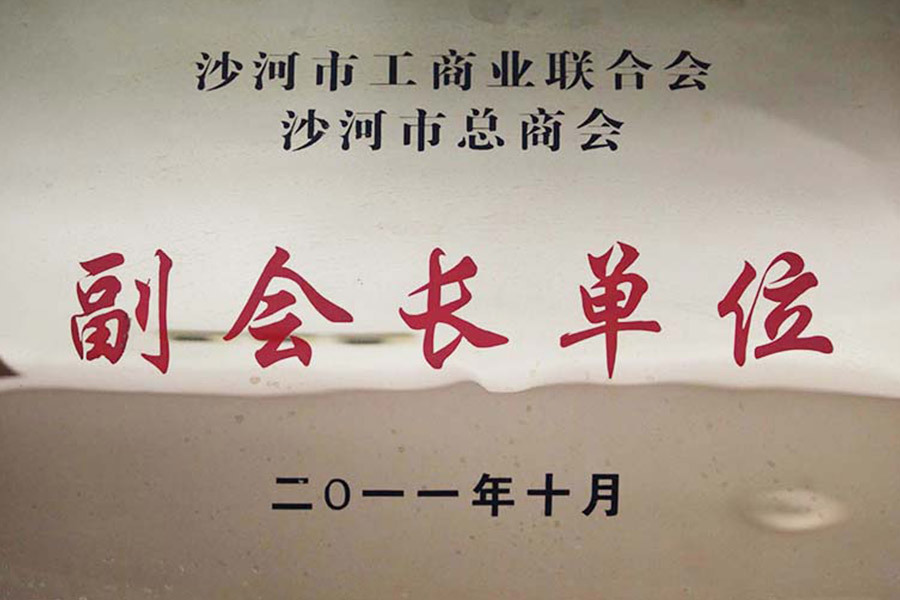 沙河市工商业联合会
沙河市总商会
副会长单位
二0一一年十月